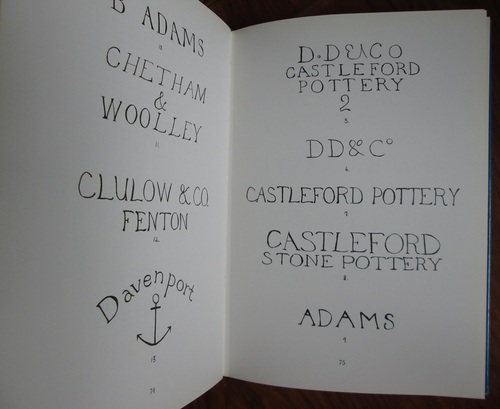 B ADAMS
10
CHETHAM
&
WOOLLEY
11.
CLULOW & CO.
FENTON
12.
Davenport
13
74
D.DE&CO
CASTLEFORD
POTTERY
2
5.
DD&Cº
6.
CASTLEFORD POTTERY
7.
CASTLEFORD
STONE POTTERY
8.
ADAMS
9.
75